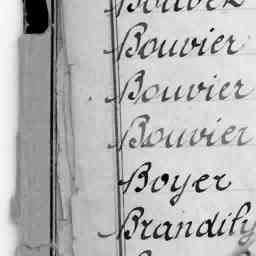 Bouvier
Bouvier
Bouvier
Boyer
Brandily